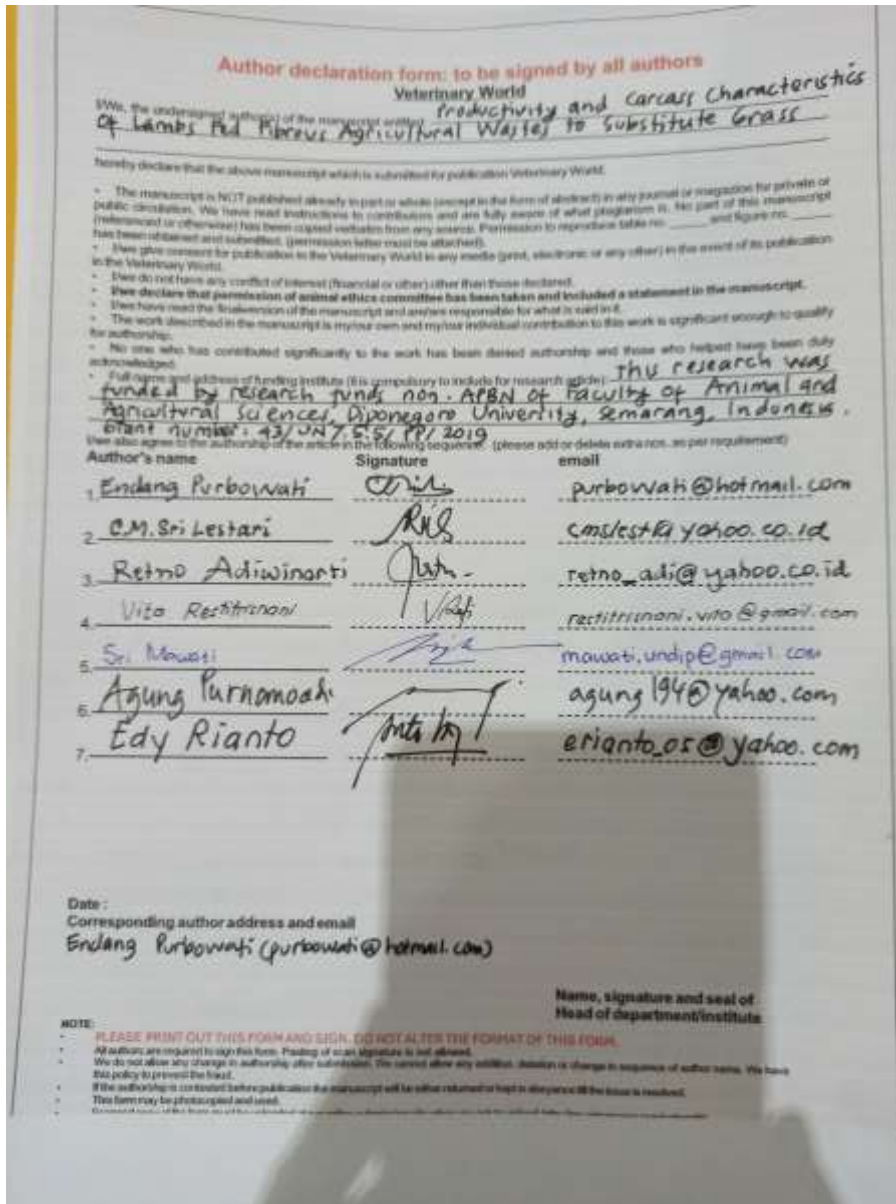 Author declaration form: to be signed by all authors
Veterinary World
I/We, the undersigned author(s) of the manuscript entitled Productivity and Carcass Characteristics
Of Lambs Fed Fibrous Agricultural Wastes to Substitute Grass
hereby declare that the above manuscript which is submitted for publication Veterinary World.
• The manuscript is NOT published already in part or whole (except in the form of abstract) in any journal or magazine for private or
public circulation. We have read instructions to contributors and are fully aware of what plagiarism is. No part of this manuscript
(referenced or otherwise) has been copied verbatim from any source. Permission to reproduce table no. ______ and figure no. ______
has been obtained and submitted. (permission letter must be attached).
• I/we give consent for publication in the Veterinary World in any media (print, electronic or any other) in the event of its publication
in the Veterinary World.
• I/we do not have any conflict of interest (financial or other) other than those declared.
• I/we declare that permission of animal ethics committee has been taken and included a statement in the manuscript.
• I/we have read the final version of the manuscript and am/are responsible for what is said in it.
• The work described in the manuscript is my/our own and my/our individual contribution to this work is significant enough to qualify
for authorship.
• No one who has contributed significantly to the work has been denied authorship and those who helped have been duly
acknowledged.
• Full name and address of funding institute (it is compulsory to include for research article): This research was
funded by research funds non. APBN of Faculty of Animal and
Agricultural Sciences, Diponegoro University, Semarang, Indonesia.
Grant number: 43/UN7.5.5/PP/2019
I/we also agree to the authorship of the article in the following sequence: (please add or delete extra nos. as per requirement)
Author's name Signature email
1. Endang Purbowati purbowati@hotmail.com
2. C.M. Sri Lestari yahoo.co.id
3. Retno Adiwinarti retno_adi@yahoo.co.id
4. Vita Restitrisnani restitrisnani.vita@gmail.com
5. Sri Mawati mawati.undip@gmail.com
6. Agung agung194@yahoo.com
7. Edy Rianto erianto_05@yahoo.com
Date :
Corresponding author address and email
Endang Purbowati (purbowati@hotmail.com)
Name, signature and seal of
Head of department/institute
NOTE:
• PLEASE PRINT OUT THIS FORM AND SIGN. DO NOT ALTER THE FORMAT OF THIS FORM.
• All authors are required to sign this form. Pasting of scan signature is not allowed.
• We do not allow any change in authorship after submission. We cannot allow any addition, deletion or change in sequence of author name. We have
this policy to prevent the fraud.
• If the authorship is contested before publication the manuscript will be either returned or kept in abeyance till the issue is resolved.
• This form may be photocopied and used.